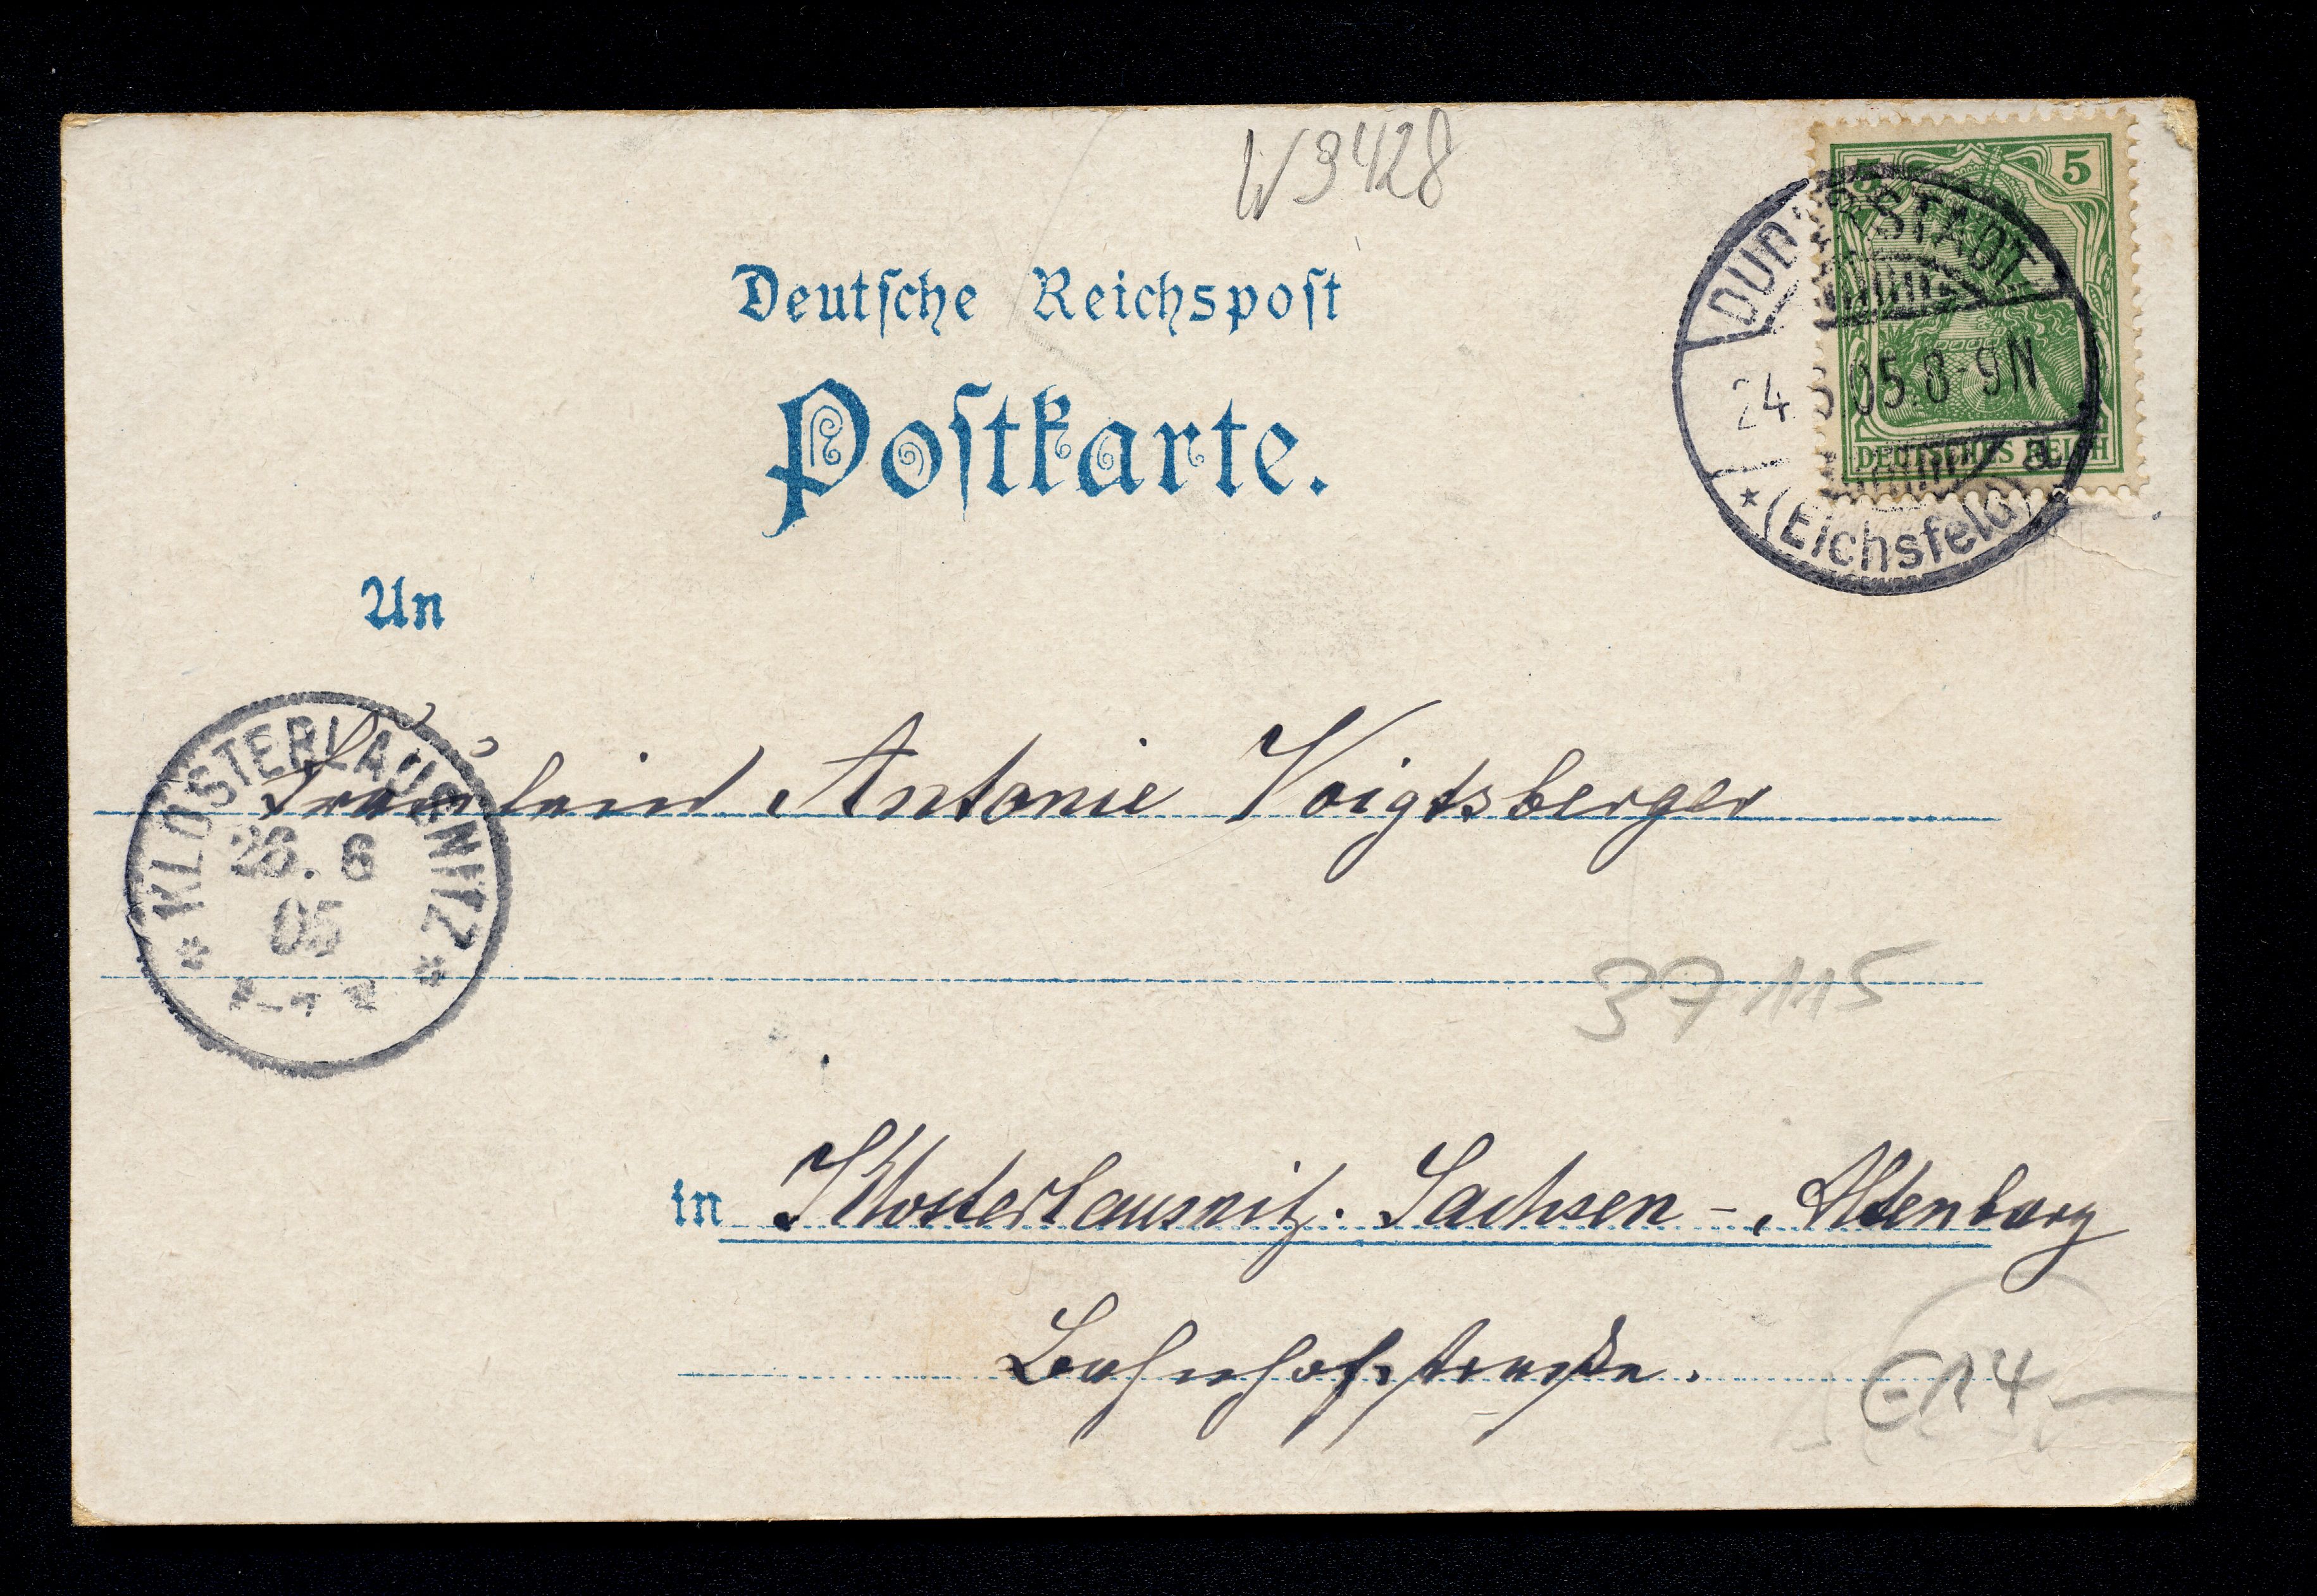 W 3428
5 5
DEUTSCHES REICH
DUDERSTADT
24. 05. 8-9N
a
* (Eichsfeld)
Deutsche Reichspost
Postkarte.
An
Fräulein Antonie Voigtsberger
* KLOSTERLAUSNITZ *
26. 6
05
37115
in Klosterlausnitz. Sachsen - Altenburg
Bahnhofstraße.
E14